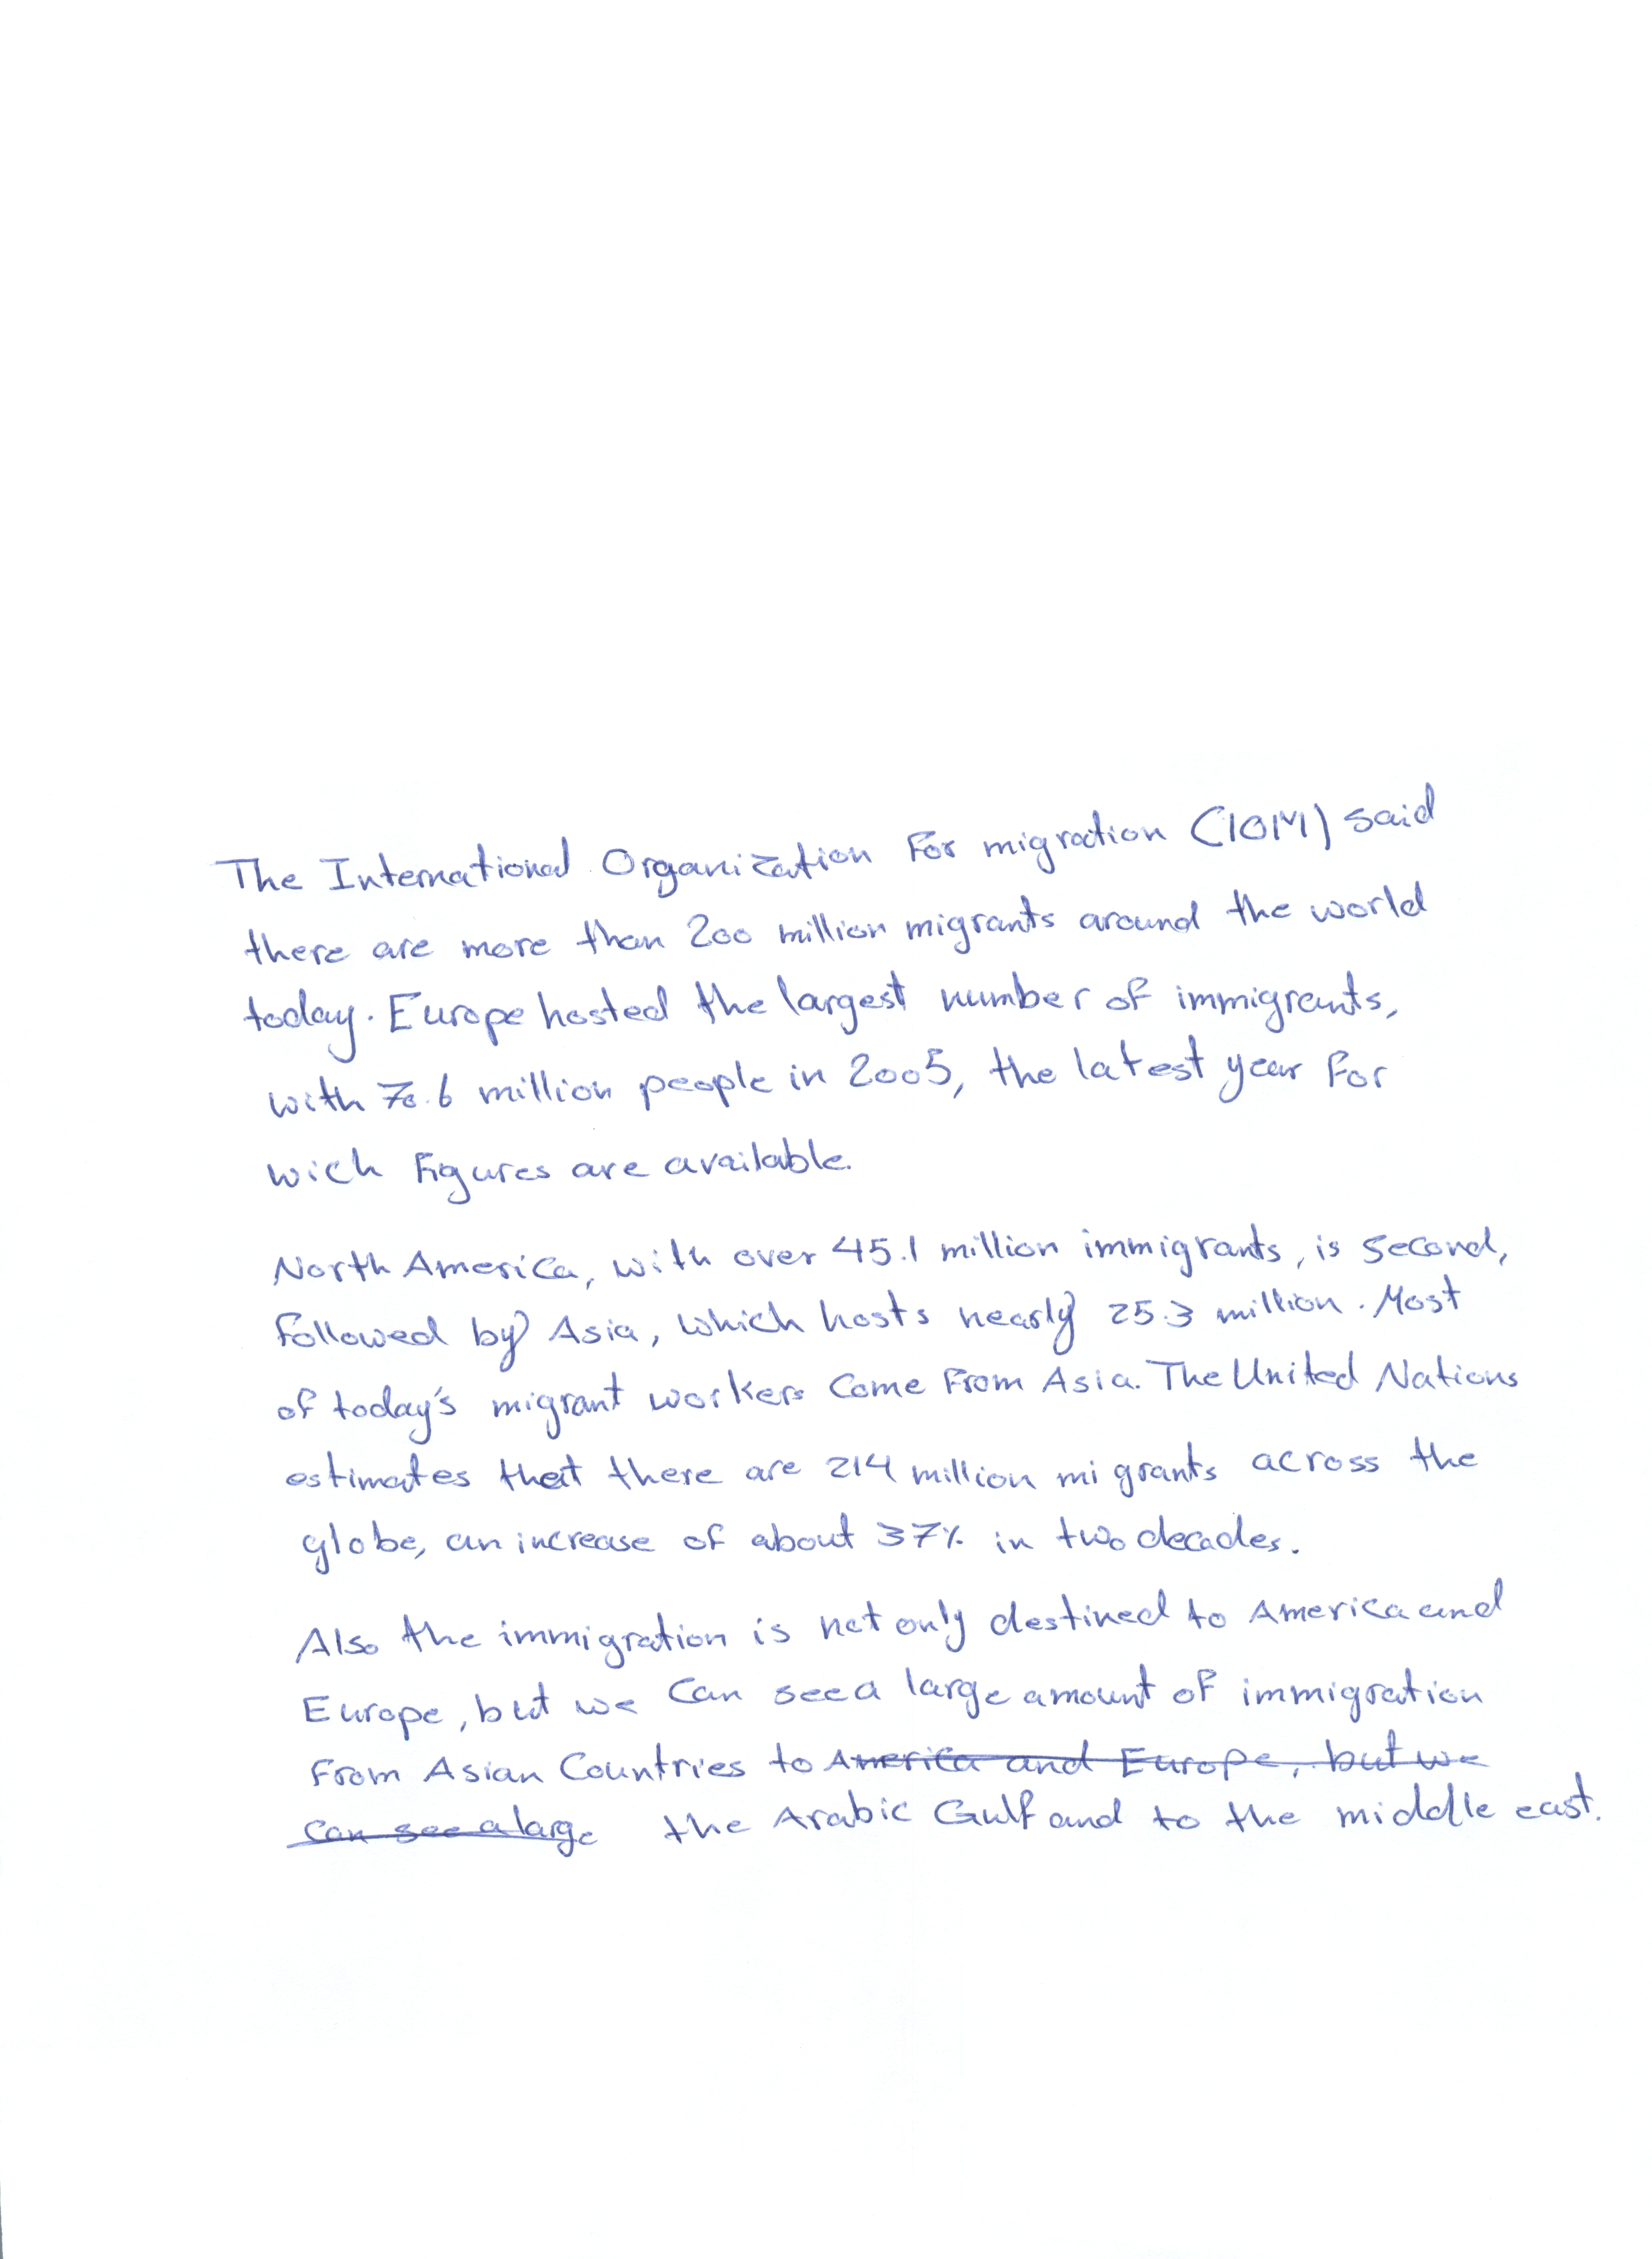 The International Organization For migration (IOM) said
there are more than 200 million migrants around the world
today. Europe hosted the largest number of immigrants,
with 70.6 million people in 2005, the latest year for
wich figures are available.
North America, with over 45.1 million immigrants, is second,
followed by Asia, which hosts nearly 25.3 million. Most
of today's migrant workers come from Asia. The United Nations
estimates that there are 214 million migrants across the
globe, an increase of about 37% in two decades.
Also the immigration is not only destined to America and
Europe, but we can see a large amount of immigration
from Asian Countries to America and Europe, but we
can see a large the Arabic Gulf and to the middle east.